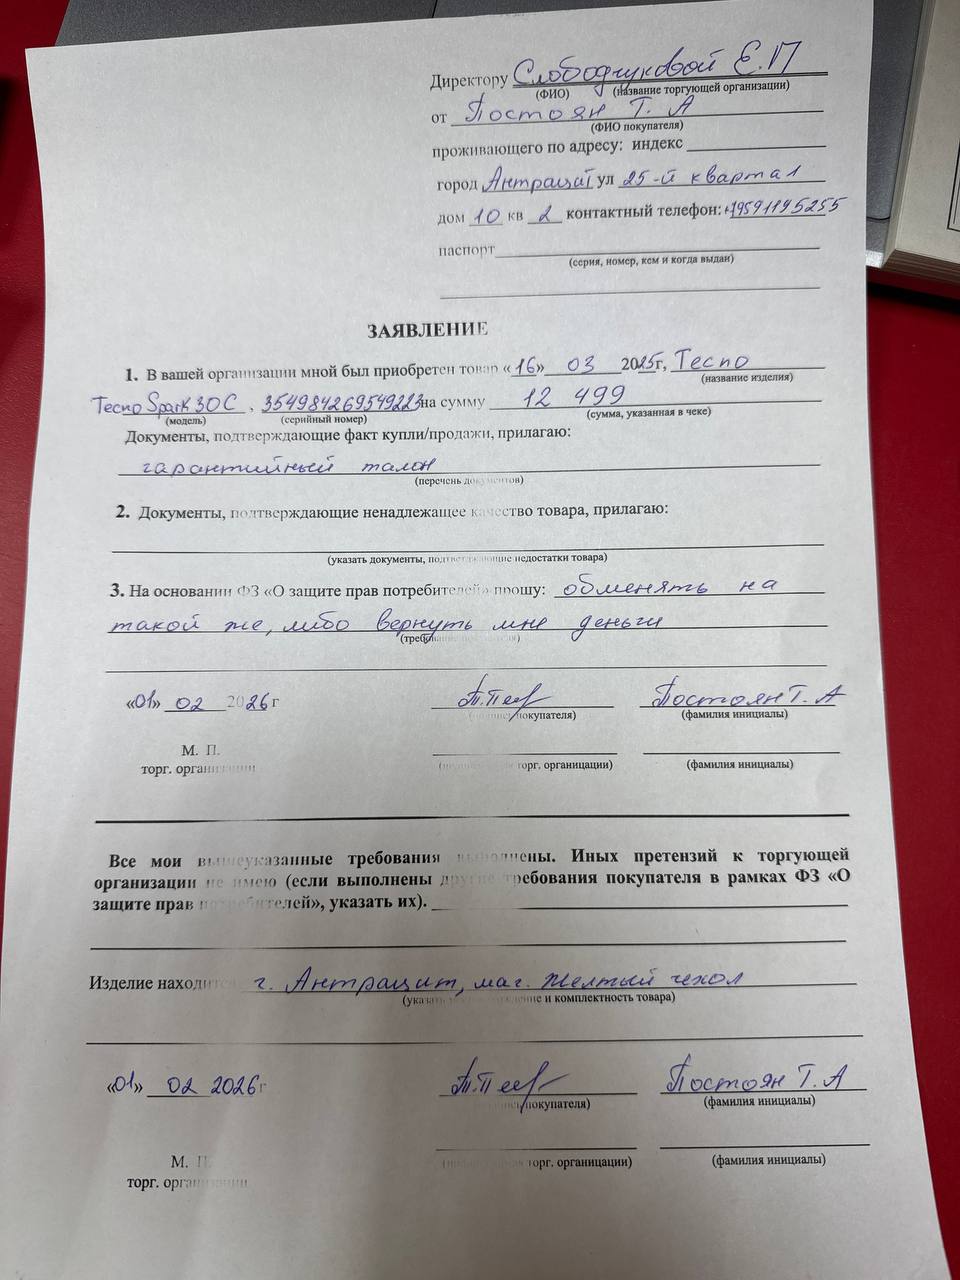 Директору Слободчуковой Е.П
(ФИО) (название торгующей организации)
от Постоян Т. А
(ФИО покупателя)
проживающего по адресу: индекс
город Антрацит ул 25-й квартал
дом 10 кв 2 контактный телефон: +79591195255
паспорт
(серия, номер, кем и когда выдан)
ЗАЯВЛЕНИЕ
1. В вашей организации мной был приобретен товар «16» 03 2025г, Tecno
(название изделия)
Tecno Spark 30C , 354984269549223 на сумму 12 499
(модель) (серийный номер) (сумма, указанная в чеке)
Документы, подтверждающие факт купли/продажи, прилагаю:
гарантийный талон
(перечень документов)
2. Документы, подтверждающие ненадлежащее качество товара, прилагаю:
(указать документы, подтверждающие недостатки товара)
3. На основании ФЗ «О защите прав потребителей» прошу: обменять на
такой же, либо вернуть мне деньги
(требование)
«01» 02 2026 г Постоян Т. А
покупателя) (фамилия инициалы)
М. П.
торг. организации торг. органицации) (фамилия инициалы)
Все мои вышеуказанные требования выполнены. Иных претензий к торгующей
организации не имею (если выполнены другие требования покупателя в рамках ФЗ «О
защите прав потребителей», указать их).
Изделие находится г. Антрацит, маг. Желтый чехол
(указать и комплектность товара)
«01» 02 2026 г Постоян Т. А
покупателя) (фамилия инициалы)
М. П.
торг. организации торг. органицации) (фамилия инициалы)